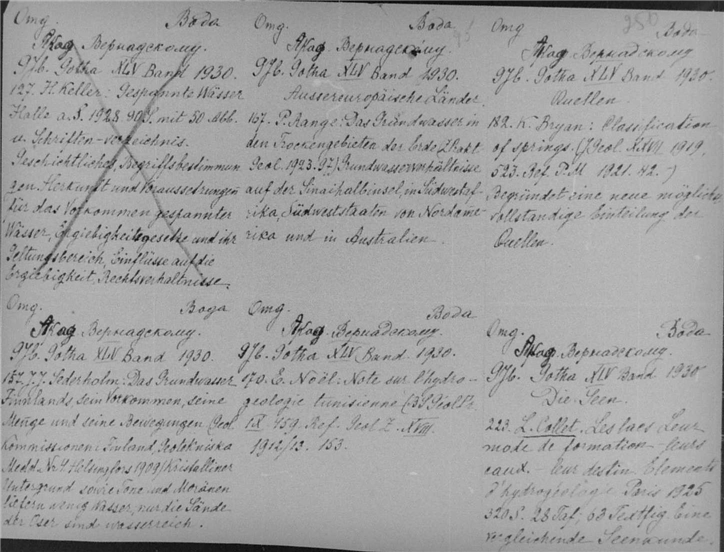 Отд. Вода
Акад. Вернадскому.
Gjb. Gotha XLV Band 1930.
127. H. Keller: Gespannte Wässer
Halle a. S. 1928. 90 S. mit 50 Abb.
u. Schriften-verzeichnis.
Geschichtliches, Begriffsbestimmun
gen Herkunft und Voraussetzungen
für das Vorkommen gespannter
Wässer, Ergiebigkeitsgesetze und ihr
Geltungsbereich, Einflüsse auf die
Ergiebigkeit, Rechtsverhältnisse.
Отд. Вода
Акад. Вернадскому.
Gjb. Gotha XLV Band 1930.
Aussereuropäische Länder.
157. P. Range: Das Grundwasser in
den Trockengebieten der Erde
Geol. 1923. 97) Grundwasserverhältnisse
auf der Sinaihalbinsel, in Südwestaf-
rika, Südweststaaten von Nordame
rika und in Australien.
280
Отд. Вода
Акад. Вернадскому
Gjb. Gotha XLV Band 1930.
Quellen.
182. K. Bryan: Classification
of springs. (J. Geol. XXVII. 1919.
523. Ref. P.M. 1921. 42.)
Begründet eine neue möglichst
vollständige Einteilung der
Quellen.
Отд. Вода
Акад. Вернадскому.
Gjb. Gotha XLV Band 1930.
157. J. J. Sederholm: Das Grundwasser
Finnlands sein Vorkommen, seine
Menge und seine Bewegungen (Geol
Kommissionen i Finland, Geotekniska
Medd. Nr. Helsingfors 1909) Kristalliner
Untergrund sowie Tone und Moränen
liefern wenig Wasser, nur die Sände
der Oser sind wasserreich.
Отд. Вода
Акад. Вернадскому.
Gjb. Gotha XLV Band 1930.
170. E. Noël: Note sur l'hydro-
geologie tunisienne (BS Géol Fr.
IX. 459. Ref. Geol. Z. XVIII.
1912/13. 153.
Отд. Вода
Акад. Вернадскому.
Gjb. Gotha XLV Band 1930
Die Seen.
223. L. Collet. Les lacs Leur
mode de formation - leurs
eaux - leur destin Elements
d'hydrogéologie Paris 1925
320 S. 28 Taf, 63 Textfig Eine
vergleichende Seenkunde.